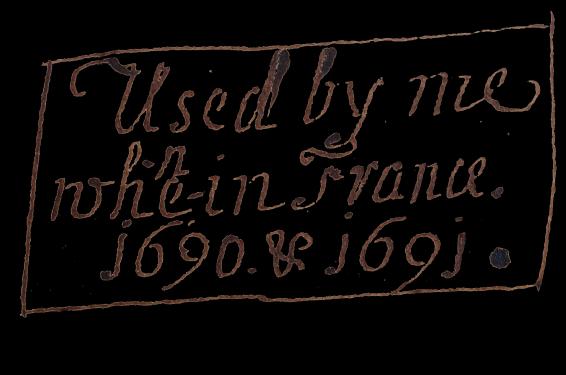 Used by me
whⁿe-in France.
1690. & 1691.